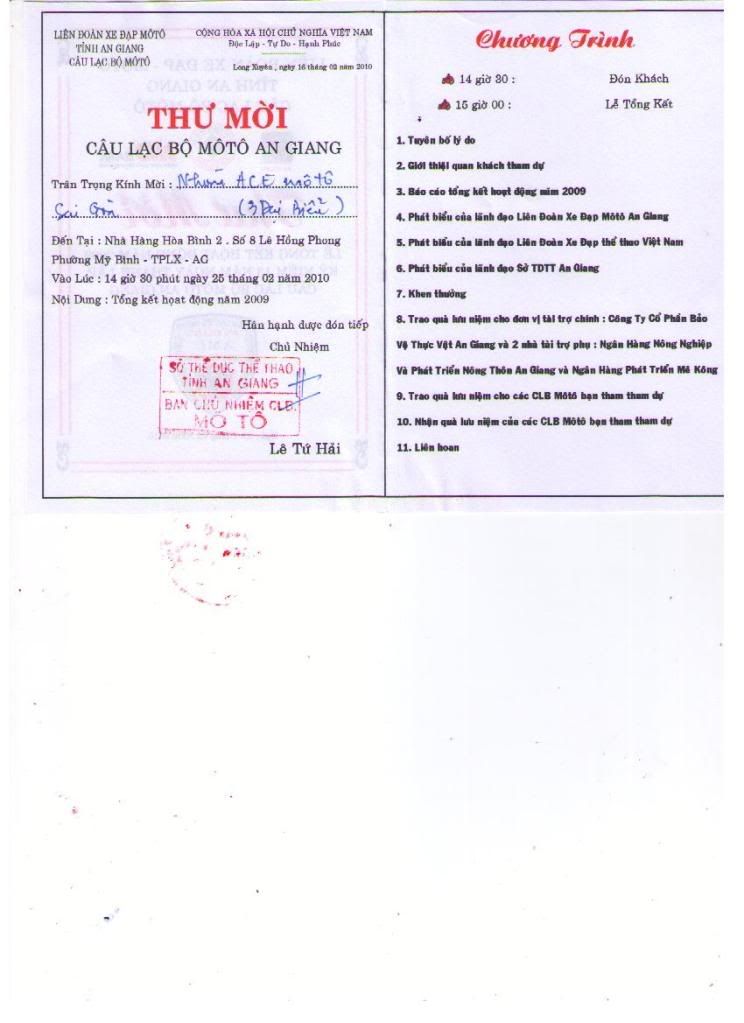 LIÊN ĐOÀN XE ĐẠP MÔTÔ
TỈNH AN GIANG
CÂU LẠC BỘ MÔTÔ
CỘNG HÒA XÃ HỘI CHỦ NGHĨA VIỆT NAM
Độc Lập - Tự Do - Hạnh Phúc
Long Xuyên , ngày 16 tháng 02 năm 2010
THƯ MỜI
CÂU LẠC BỘ MÔTÔ AN GIANG
Trân Trọng Kính Mời : Nhóm ACE môtô
Sài Gòn (3 Đại Biểu)
Đến Tại : Nhà Hàng Hòa Bình 2 . Số 8 Lê Hồng Phong
Phường Mỹ Bình - TPLX - AG
Vào Lúc : 14 giờ 30 phút ngày 25 tháng 02 năm 2010
Nội Dung : Tổng kết họat động năm 2009
Hân hạnh được đón tiếp
Chủ Nhiệm
SỞ THỂ DỤC THỂ THAO
TỈNH AN GIANG
BAN CHỦ NHIỆM CLB
MÔ TÔ
Lê Tứ Hải
Chương Trình
14 giờ 30 : Đón Khách
15 giờ 00 : Lễ Tổng Kết
1. Tuyên bố lý do
2. Giới thiệi quan khách tham dự
3. Báo cáo tổng kết hoạt động năm 2009
4. Phát biểu của lãnh đạo Liên Đoàn Xe Đạp Môtô An Giang
5. Phát biểu của lãnh đạo Liên Đoàn Xe Đạp thể thao Việt Nam
6. Phát biểu của lãnh đạo Sở TDTT An Giang
7. Khen thưởng
8. Trao quà lưu niệm cho đơn vị tài trợ chính : Công Ty Cổ Phần Bảo
Vệ Thực Vật An Giang và 2 nhà tài trợ phụ : Ngân Hàng Nông Nghiệp
Và Phát Triển Nông Thôn An Giang và Ngân Hàng Phát Triển Mê Kông
9. Trao quà lưu niệm cho các CLB Môtô bạn tham tham dự
10. Nhận quà lưu niệm của các CLB Môtô bạn tham tham dự
11. Liên hoan